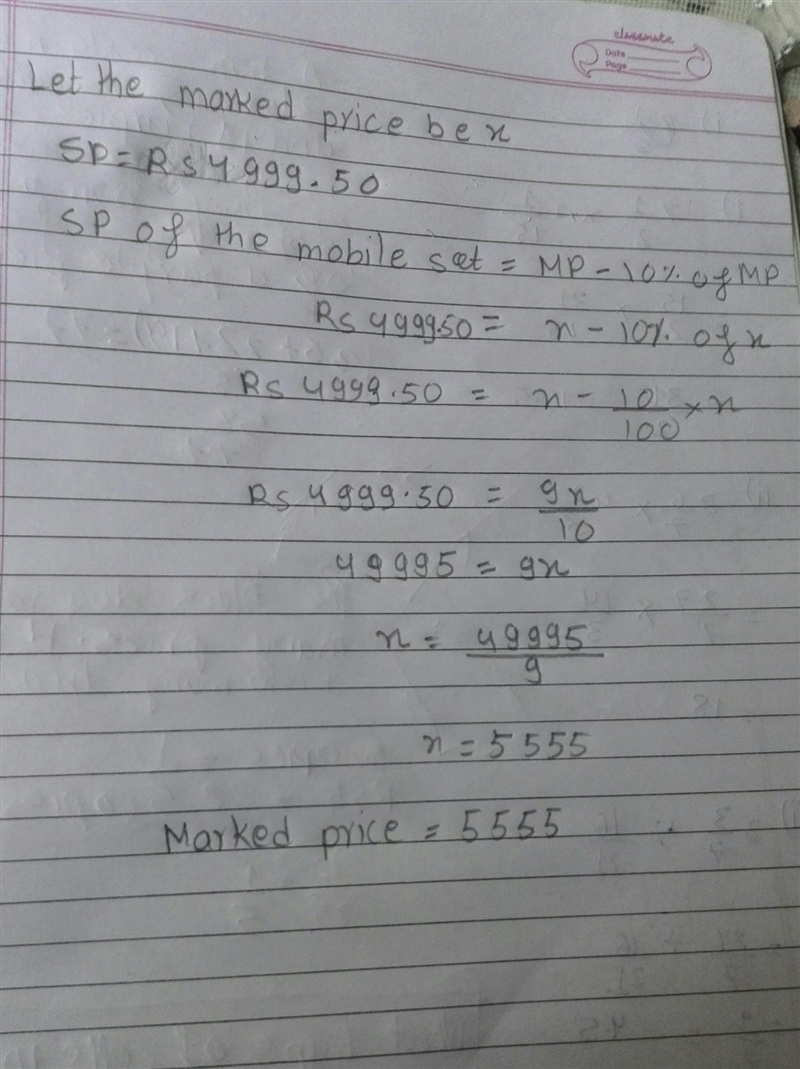 classmate
Date
Page
Let the marked price be x
SP = Rs 4999.50
SP of the mobile set = MP - 10% of MP
Rs 4999.50 = x - 10% of x
Rs 4999.50 = x - 10/100 × x
Rs 4999.50 = 9x/10
49995 = 9x
x = 49995/9
x = 5555
Marked price = 5555